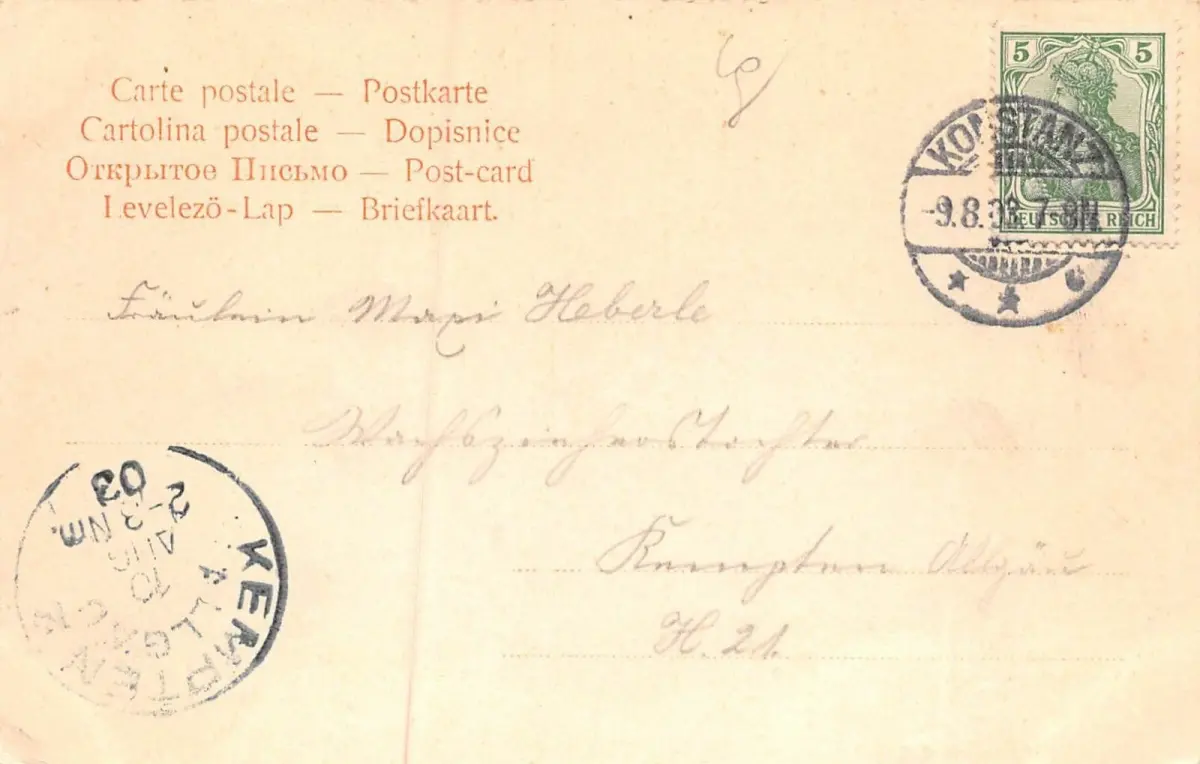 Carte postale — Postkarte
Cartolina postale — Dopisnice
Открытое Письмо — Post-card
Levelezö-Lap — Briefkaart.
5 5
DEUTSCHES REICH
KONSTANZ
-9.8.03. 7-8N.
Fräulein Maxi Heberle
Wachsziehers Tochter
Kempten Allgäu
H. 21.
KEMPTEN
2-3 Nm.
10 AUG
03